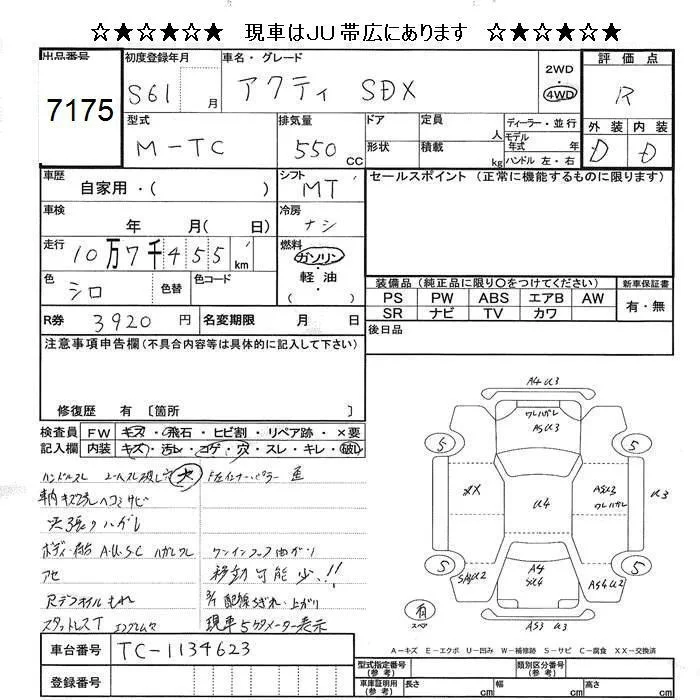 ☆★☆★☆★ 現車はJU帯広にあります ☆★☆★☆★
出品番号
7175
初度登録年月
S61 月
車名・グレード
アクティ SDX
2WD
・
4WD
評価点
R
外装 内装
D D
型式
M-TC
排気量
550 CC
ドア
形状
定員 人
積載 kg
ディーラー・並行
モデル
年式 年
ハンドル 左・右
車歴
自家用・( )
シフト
MT
セールスポイント(正常に機能するものに限ります)
車検
年 月( 日)
冷房
ナシ
走行
10万7千455km
燃料
ガソリン
・
軽油
( )
色
シロ
色替
色コード
装備品(純正品に限り〇をつけてください)
PS PW ABS エアB AW
SR ナビ TV カワ
新車保証書
有・無
R券 3920 円
名変期限 月 日
後日品
注意事項申告欄(不具合内容等は具体的に記入して下さい)
修復歴 有 〔箇所 〕
検査員
記入欄
FW キズ・飛石・ヒビ割・リペア跡・×要
内装 キズ・汚レ・コゲ・穴・スレ・キレ・破レ
ハンドルスレ
大
車内キズ
天張りハガレ
ボディ・
A.U.S.C
移動可能少.!!
配線
上がり
スタッドレスT
現車5ケタメーター表示
A4 U3
ワレハガレ
A5U3
5
5
XX
U4
A5U3
ワレハガレ
U3
5
5
A4
S4U4
S4A4U2
A54U2
A53 U2
有
スペア
A-キズ E-エクボ U-凹み W-補修跡 S-サビ C-腐食 XX-交換済
車台番号
TC-1134623
登録番号
型式指定番号
(参考)
類別区分番号
(参考)
車庫証明用
(参考)
長さ cm
幅 cm
高さ cm